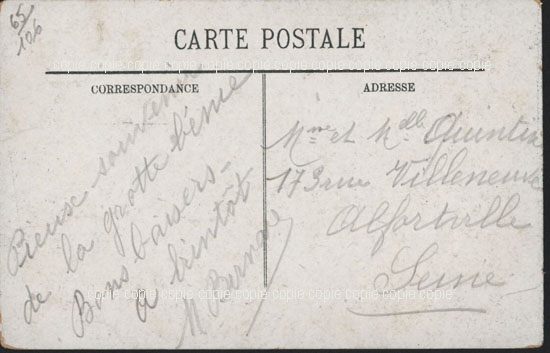 65
106
CARTE POSTALE
copie copie copie copie copie copie copie copie copie copie copie copie
CORRESPONDANCE
ADRESSE
Pieuse souvenir
de la grotte bénie
Bons baisers
a bientôt
M
Mme et Mdlle Quintin
173 rue Villeneuve
Alfortville
Seine
copie copie copie copie copie copie copie copie copie